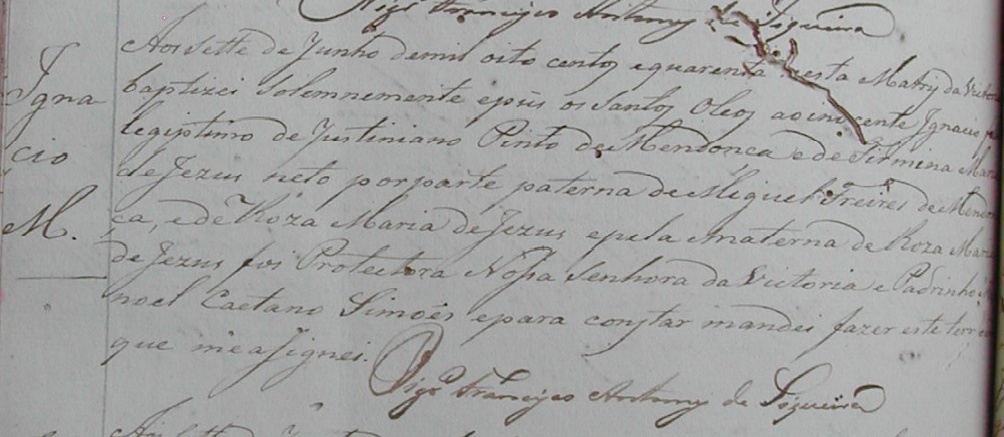 Vigrº Francisco Antonny de Siqueira
Aos sette de Junho de mil oito centos e quarenta nesta Matriz da Victo
Igna
baptizei Solemnemente e pus os Santos Oleos ao innocente Ignacio
cio
legiptimo de Justiniano Pinto de Mendonça e de Firmina Maria
de Jezus neto por parte paterna de Miguel Freires de Mendon
M.
ça, e de Roza Maria de Jezus e pela materna de Roza Maria
de Jezus foi Protectora Nossa Senhora da Victoria e Padrinho
noel Caetano Simões e para constar mandei fazer este termo
que me assignei.
Vigrº Francisco Antonny de Siqueira
Aos sette